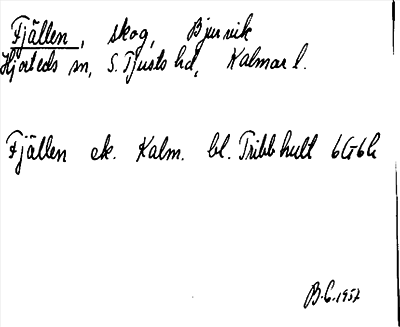 Fjällen, skog, Bjurvik
Hjorteds sn, S. Tjusts hd, Kalmar l.
Fjällen ek. Kalm. bl. Tribbhult 6G6h
B.C. 1957